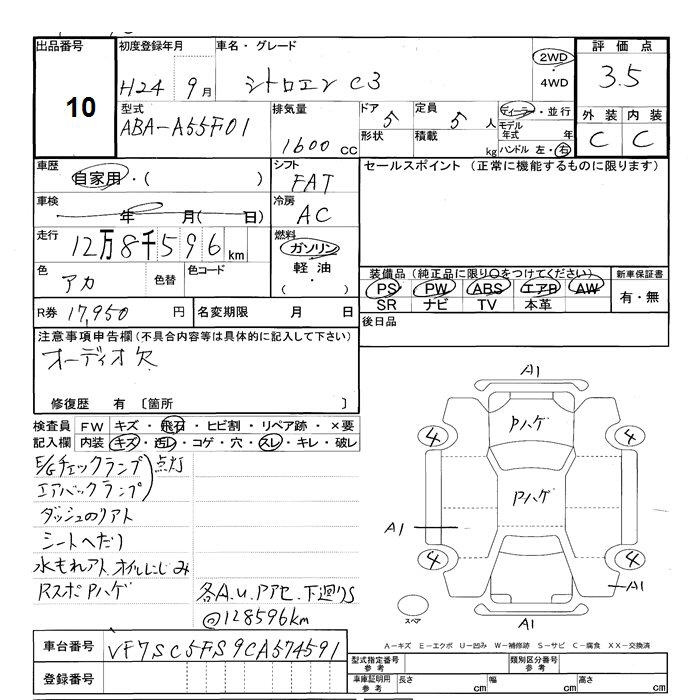 出品番号
10
初度登録年月
H24 9月
車名・グレード
シトロエン C3
2WD
・
4WD
評価点
3.5
型式
ABA-A55F01
排気量
1600 cc
ドア 5
形状
定員 5 人
積載 kg
ディーラー・並行
モデル年式 年
ハンドル 左・右
外装 内装
C C
車歴
自家用・( )
シフト
FAT
セールスポイント (正常に機能するものに限ります)
車検
年 月( 日)
冷房
AC
走行
12万8千596km
燃料
ガソリン
軽油
・
( )
色
アカ
色替
色コード
装備品 (純正品に限り○をつけてください)
PS PW ABS エアB AW
SR ナビ TV 本革
新車保証書
有・無
R券 17,950 円
名変期限 月 日
後日品
注意事項申告欄 (不具合内容等は具体的に記入して下さい)
オーディオ欠
修復歴 有 〔箇所 〕
検査員 FW キズ・飛石・ヒビ割・リペア跡・×要
記入欄 内装 キズ・汚レ・コゲ・穴・スレ・キレ・破レ
E/Gチェックランプ 点灯
エアバックランプ
ダッシュのリアト
シートへたり
水もれアト.オイルにじみ
RスポPハゲ
各A.U.Pアセ.下廻りS
@128596km
A1
Pハゲ
4 4
Pハゲ
A1
4 4
A1
スペア
A1
A-キズ E-エクボ U-凹み W-補修跡 S-サビ C-腐食 XX-交換済
車台番号 VF7SC5FS9CA574591
登録番号
型式指定番号
参考
類別区分番号
参考
車庫証明用
参考
長さ cm 幅 cm 高さ cm